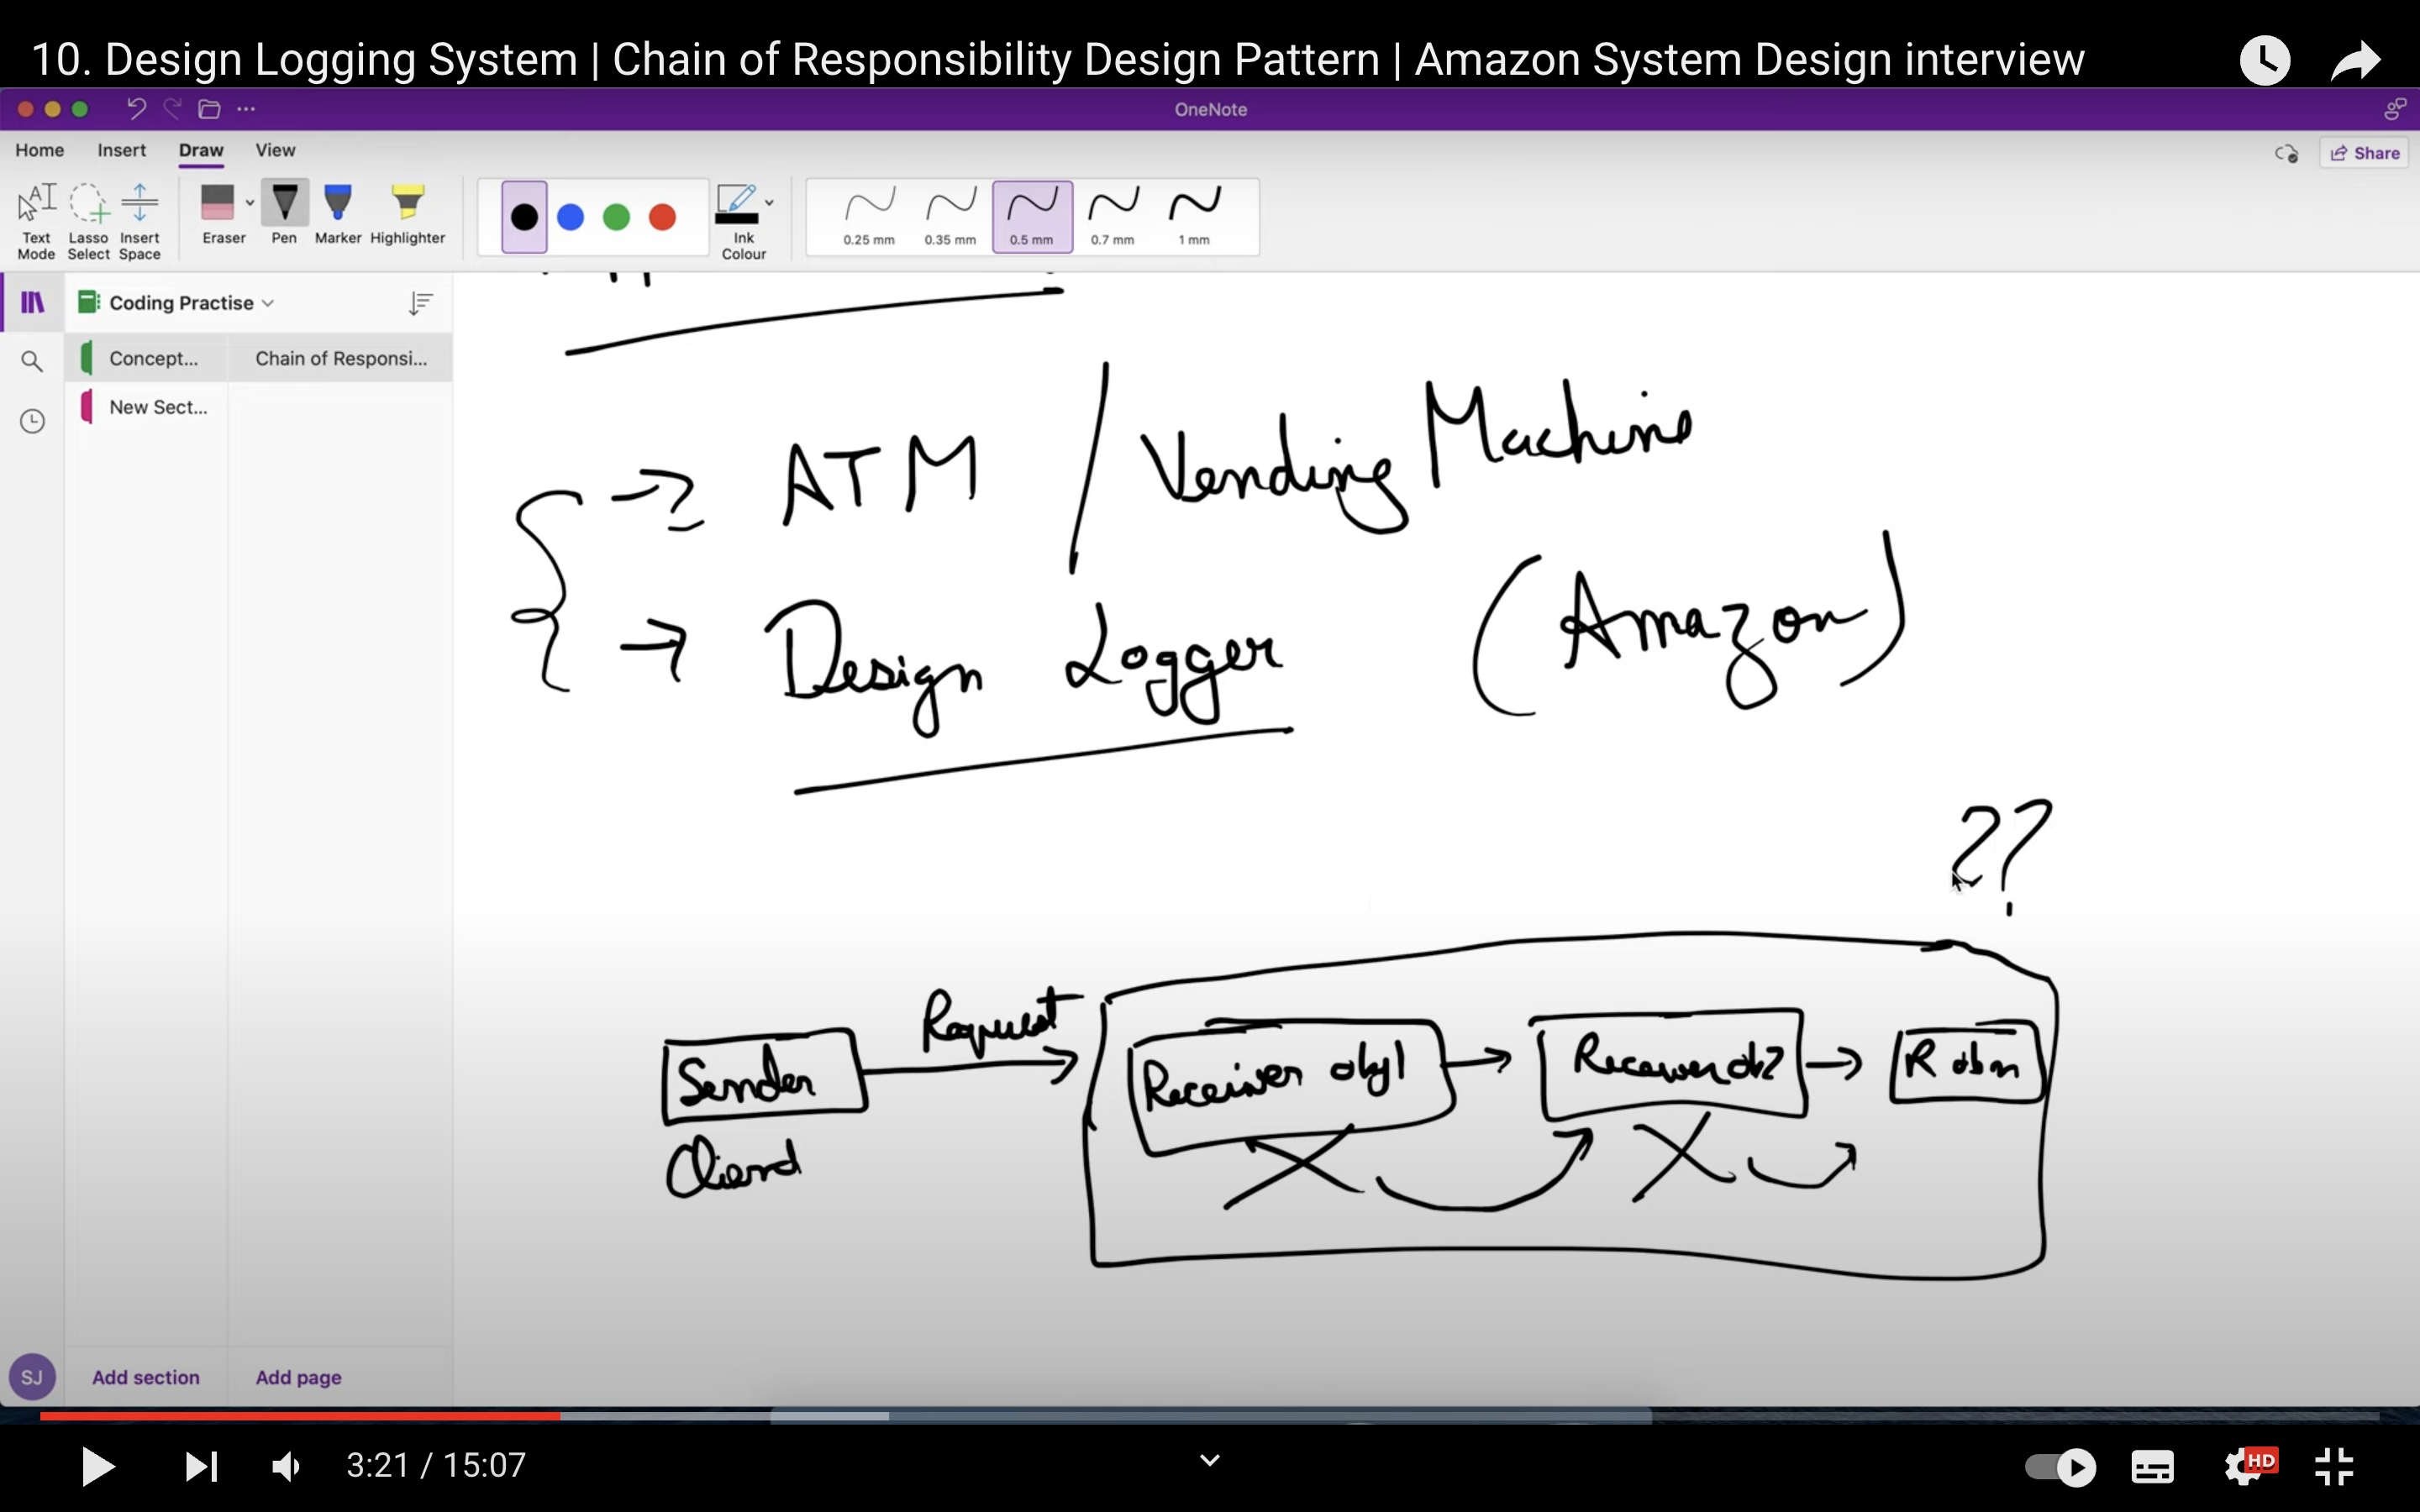 10. Design Logging System | Chain of Responsibility Design Pattern | Amazon System Design interview
OneNote
Home Insert Draw View
Share
Text Mode
Lasso Select
Insert Space
Eraser
Pen
Marker
Highlighter
Ink Colour
0.25 mm
0.35 mm
0.5 mm
0.7 mm
1 mm
Coding Practise
Concept... Chain of Responsi...
New Sect...
→ ATM / Vending Machine
→ Design Logger (Amazon)
??
Request
Sender
Receiver obj1 → Receiver ob2 → R obn
Client
SJ
Add section Add page
3:21 / 15:07
HD